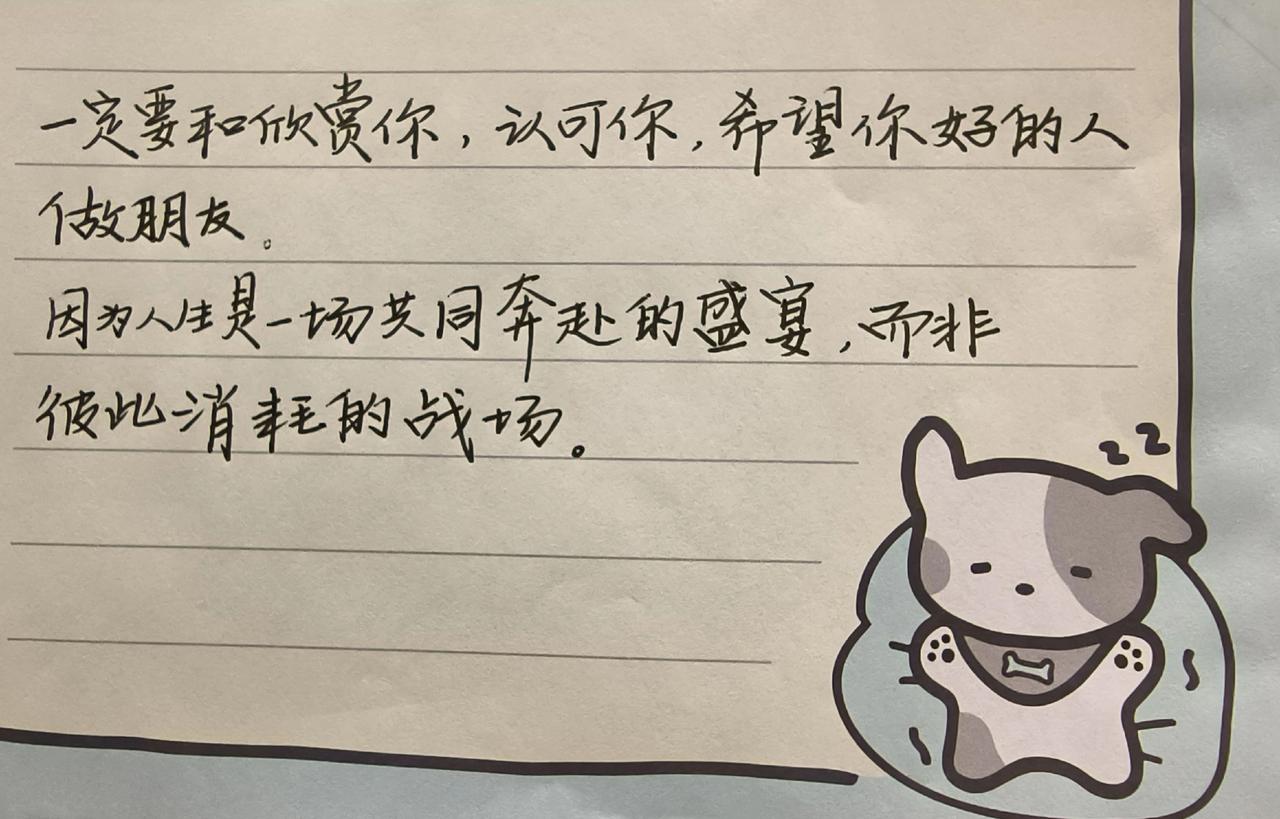 一定要和欣赏你，认可你，希望你好的人
做朋友。
因为人生是一场共同奔赴的盛宴，而非
彼此消耗的战场。
zz